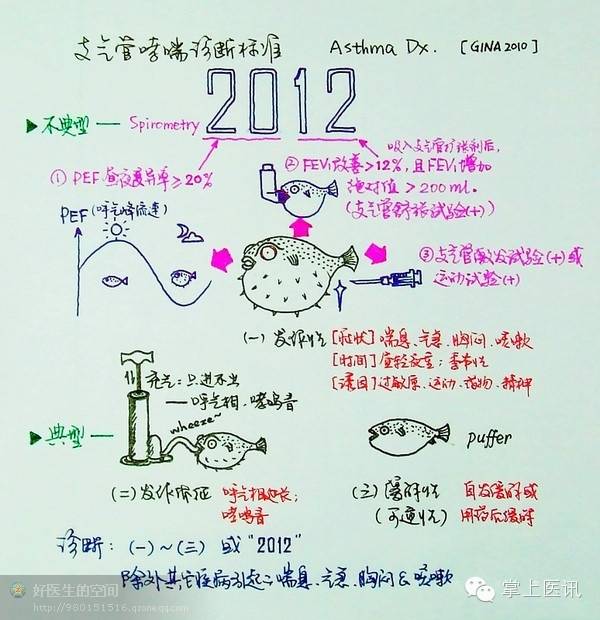 支气管哮喘诊断标准 Asthma Dx. [GINA 2010]
2012
▶不典型— Spirometry
吸入支气管扩张剂后,
① PEF昼夜变异率≥20%
② FEV₁改善>12%, 且FEV₁增加
绝对值>200ml.
(支气管舒张试验(+))
PEF(呼气峰流速)
③ 支气管激发试验(+)或
运动试验(+)
(一) 发作性 [症状] 喘息、气急、胸闷、咳嗽
[时间] 昼轻夜重; 季节性
[诱因] 过敏原、运动、药物、精神
充气: 只进不出
—呼气相、哮鸣音
wheeze~
▶典型—
puffer
(二) 发作体征 呼气相延长;
哮鸣音
(三) 缓解性 自发缓解或
(可逆性) 用药后缓解
诊断: (一)~(三) 或 "2012"
除外其它疾病引起之喘息、气急、胸闷&咳嗽
好医生的空间
http://980151516.qzone.qq.com
掌上医讯